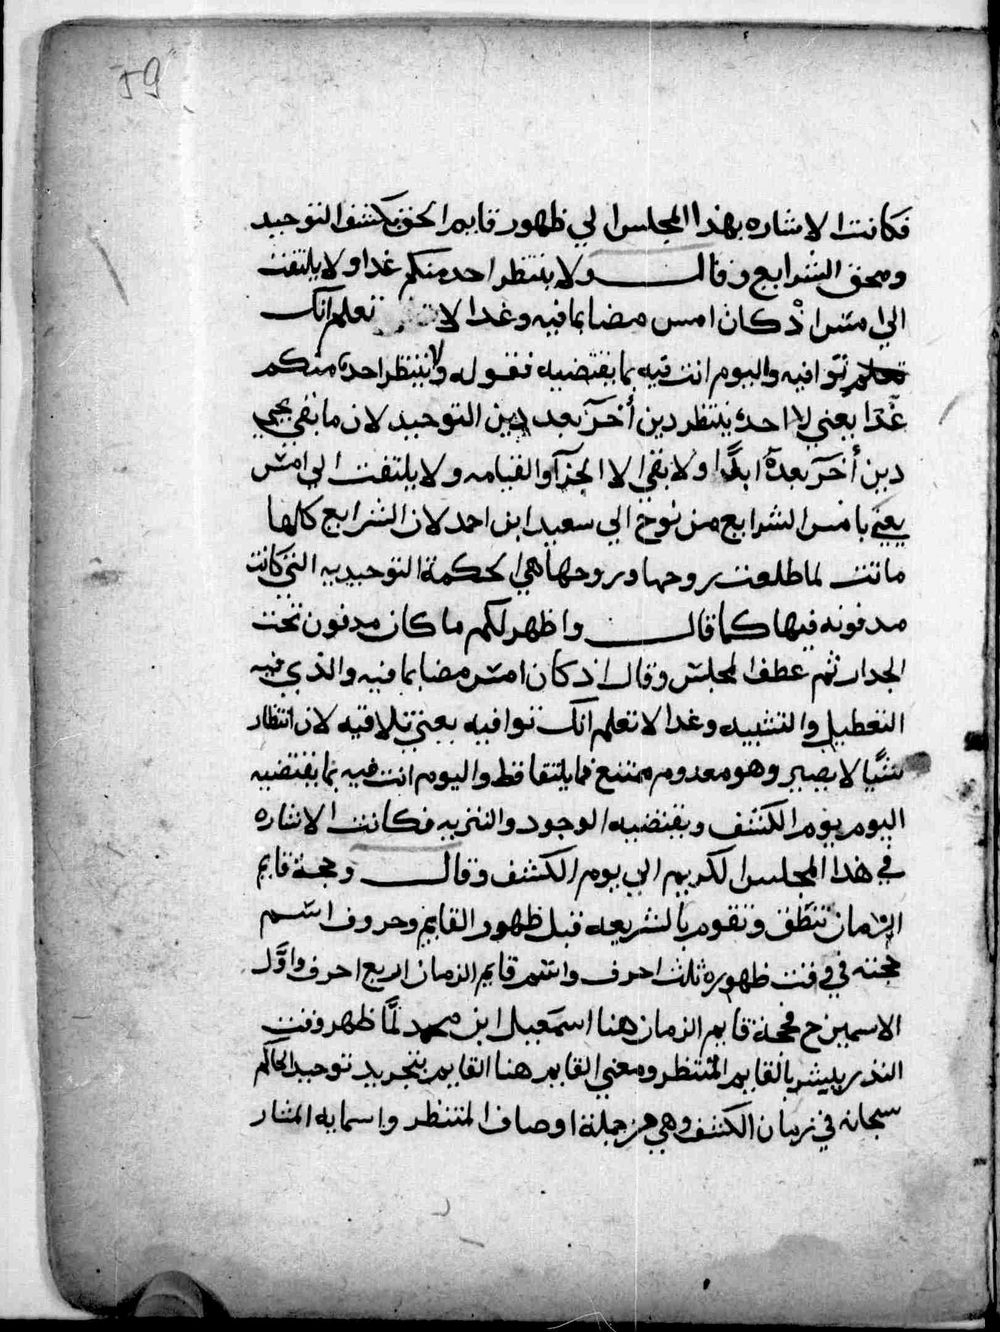 59
فكانت الاشاره بهذا المجلس الي ظهور قايم الحق بكشف التوحيد
ومحق الشرايع وقال ولا ينتظر احد منكم غدا ولا يلتفت
الي امس اذ كان امس مضا بما فيه وغدا لا تعلم انك
توافيه واليوم انت فيه بما يقتضيه فقوله ولا ينتظر احد منكم
غدا يعني لا احد ينتظر دين أخر بعد دين التوحيد لان ما بقي يجي
دين أخر بعده ابدًا ولا بقي الا الجزآ والقيامه ولا يلتفت الي امس
يعني بامس الشرايع من نوح الي سعيد ابن احمد لان الشرايع كلها
ماتت لما طلعت روحها وروحها هي الحكمة التوحيديه التي كانت
مدفونه فيها كما قال واظهر لكم ما كان مدفون تحت
الجدار ثم عطف المجلس وقال اذ كان امس مضا بما فيه والذي فيه
التعطيل والتشبيه وغدا لا تعلم انك توافيه يعني تلاقيه لان انتظار
شيًا لا يصير وهو معدوم ممتنع فما يلتقا قط واليوم انت فيه بما يقتضيه
اليوم يوم الكشف ويقتضيه الوجود والتنزيه فكانت الاشاره
في هذا المجلس الكريم الي يوم الكشف وقال وحجة قايم
الزمان تنطق وتقوم بالشريعه قبل ظهور القايم وحروف اسم
حجته في وقت ظهوره ثلث احرف واسم قايم الزمان اربع احرف واوّل
الاسمين ح فحجة قايم الزمان هنا اسمعيل ابن محمد لمّا ظهر وقت
النذر يبشر بالقايم المنتظر ومعني القايم هنا القايم بتجريد توحيد الحاكم
سبحانه في زمان الكشف وهي من جملة اوصاف المنتظر واسمايه المشار